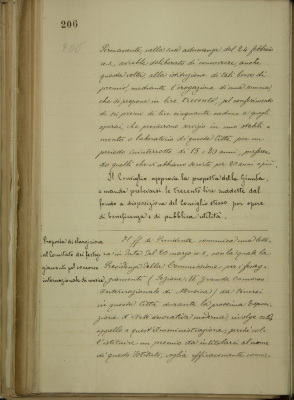 206
Permanente, nella sua adunanza del 24 febbraio
u.s., avrebbe deliberato di concorrere, anche
questa volta, alla istituzione di tali borse di
premio, mediante l'erogazione di una somma,
che si propone in lire trecento, pel conferimento
di sei premi di lire cinquanta cadauno a quegli
operai, che prestarono servizio in uno stabili-
mento o laboratorio di questa Città per un
periodo ininterrotto di 15 e 20 anni, preferen-
do quelli che v'abbiano servito per 20 anni e più.
Il Consiglio approva la proposta della Giunta,
e manda prelevarsi le trecento lire suddette dal
fondo a disposizione del Consiglio stesso per opere
di beneficenza e di pubblica utilità.
Proposta di elargizione
al Comitato dei festeg-
giamenti pel concorso
internazionale di musica
Il ff. di Presidente comunica una lette-
ra in data del 20 marzo u.s., con la quale la
Presidenza della Commissione per i festeg-
giamenti (Sezione II Grande Concorso
Internazionale di Musica) da tenersi
in questa Città durante la prossima Esposi-
zione d'Arte decorativa moderna, rivolge
appello a quest'Amministrazione, perchè col-
l'istituire un premio da intitolarsi al nome
di questo Istituto, voglia efficacemente